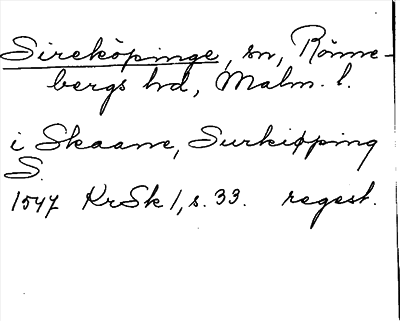 Sireköpinge, sn, Rönne-
bergs hd, Malm. l.
i Skaane, Surkiøpping
S.
1547 KrSk 1, s. 33. regest.